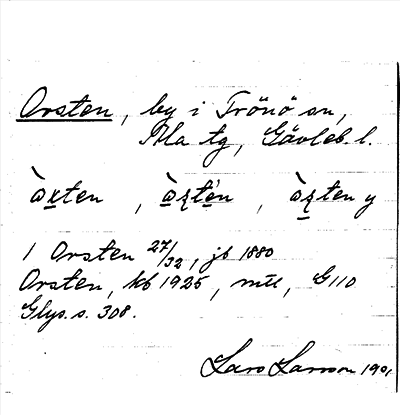 Orsten, by i Trönö sn,
Ala tg, Gävleb. l.
òxten, òʐtén, òʐten y
1 Orsten 27/32, jb 1880
Orsten, kb 1925, mtl, G110
Glys. s. 308.
Lars Larsson 1901